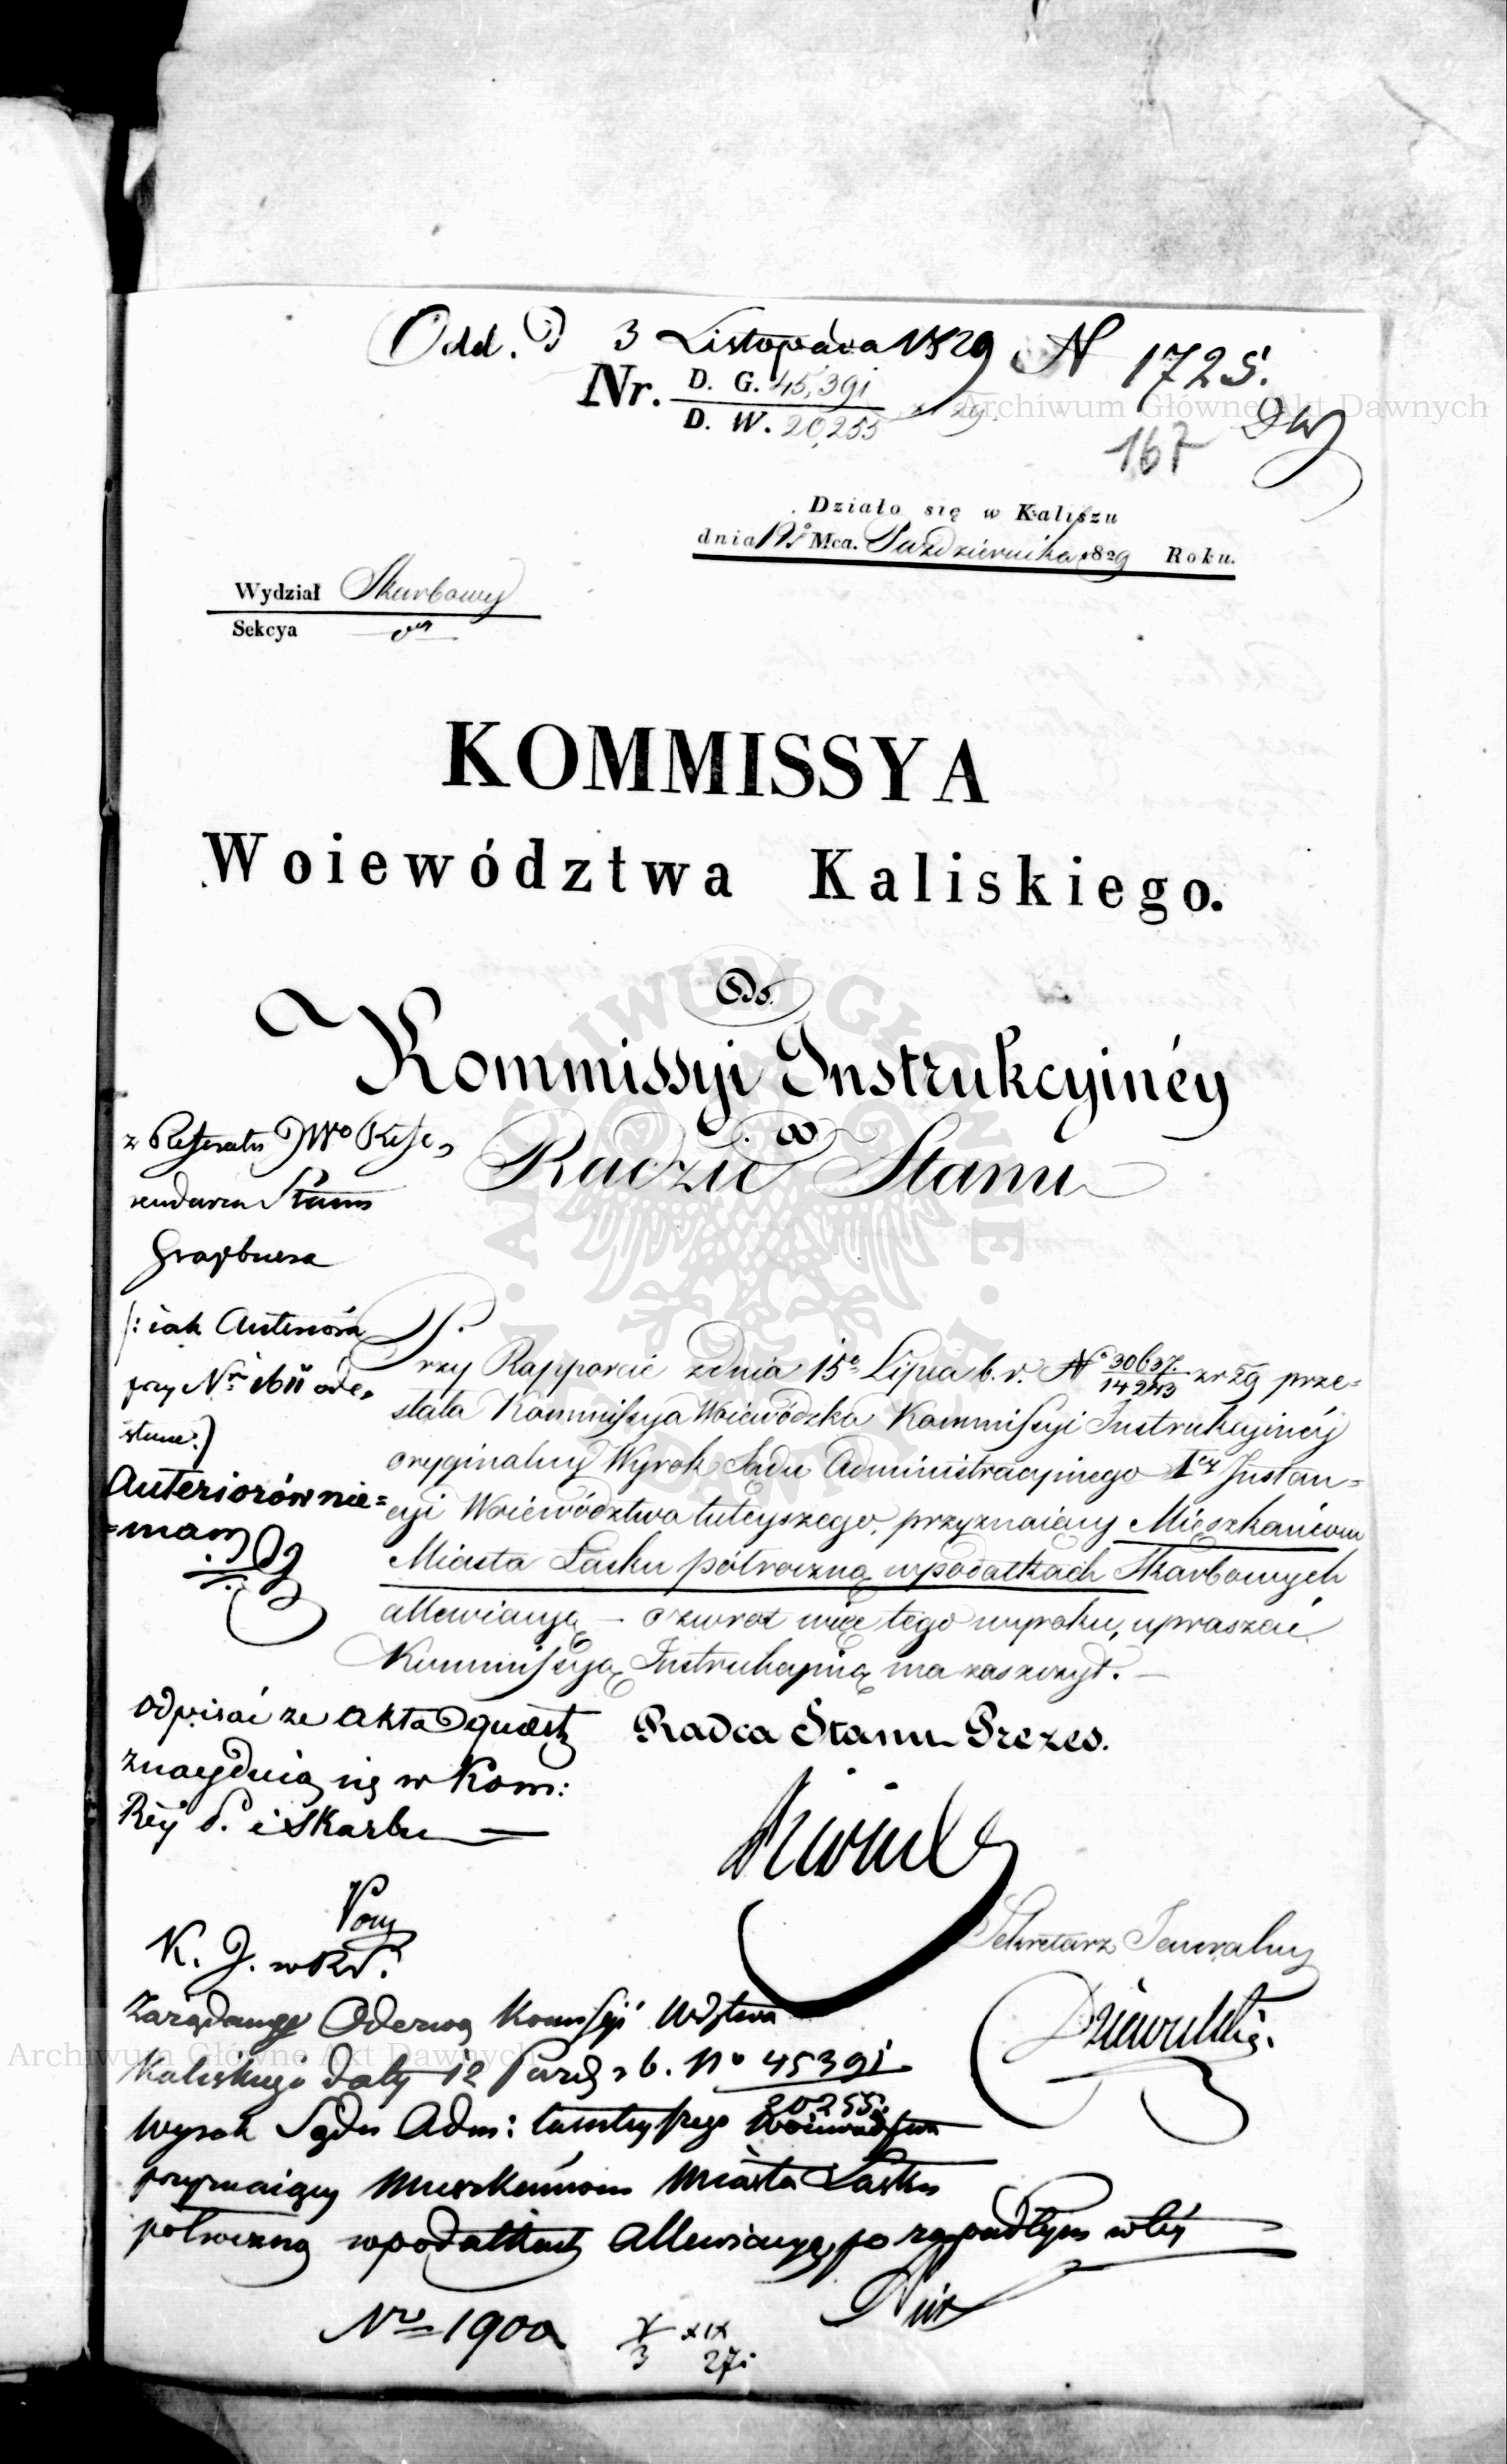 Odd. 3 Listopada 1829 N 1725.
Nr. D. G. 45,391
D. W. 20,255 29.
Archiwum Główne Akt Dawnych
167 DW
Działo się w Kaliszu
dnia 12º Mca. Października 1829 Roku.
Wydział Skarbowy
Sekcya
KOMMISSYA
Woiewództwa Kaliskiego.
Do
Kommissyi Instrukcyinéy
w
Radzie Stanu
z Referatu JWo Refe,
rendarza Stanu
Grajbnera
/: iak Anteriora
przy Nr 1611 ode,
słane :/
Anteriorów nie=
=mam
Przy Rapporcie z dnia 15º Lipca b. r. Nº 30637./14243 z r 29 prze=
słała Kommissya Woiewódzka Kommissyi Instrukcyinéy
oryginalny Wyrok Sądu Administracyinego Iéy Instan=
cyi Woiewództwa tuteyszego, przyznaiący Mięszkańcom
Miasta Łasku półroczną w podatkach Skarbowych
allewiacyą – o zwrot więc tego wyroku, upraszać
Kommissyą Instrukcyiną ma zaszczyt. –
Radca Stanu Prezes.
odpisać że akta quaest
znayduią się w Kom:
Réy P. i Skarbu
Sekretarz Jeneralny
K. J. w Rd.
Zarządany Odezwą Komssyi Wdztwa
Kaliskiego daty 12 Paźd. b. Nº 45391
20255.
Wyrok Sądu Adm: tamteyszego Woiewództwa
przyznaiący Mieszkańcom Miasta Łasku
półroczną w podatkach Allewiacyą, po zapadłym w téy
Nro 1900
X/3 XIX
27
ARCHIWUM GŁÓWNE AKT DAWNYCH
Archiwum Główne Akt Dawnych